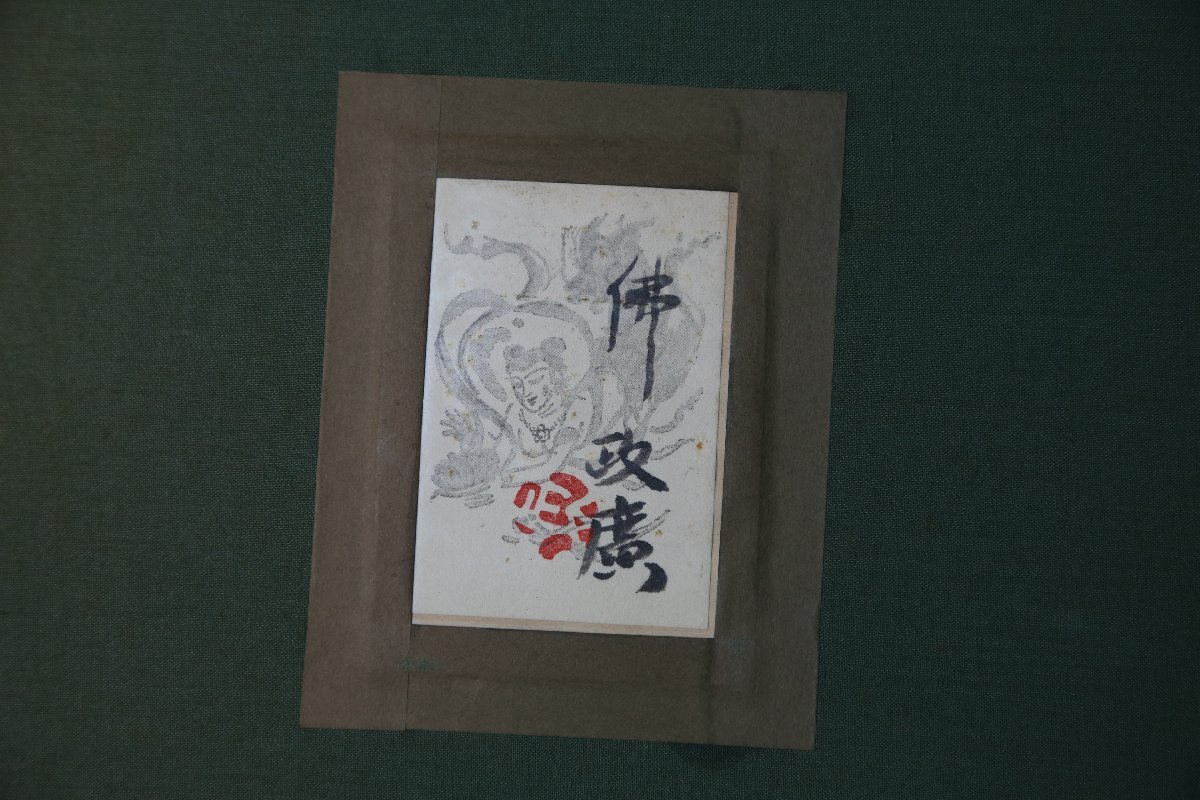 佛
政廣